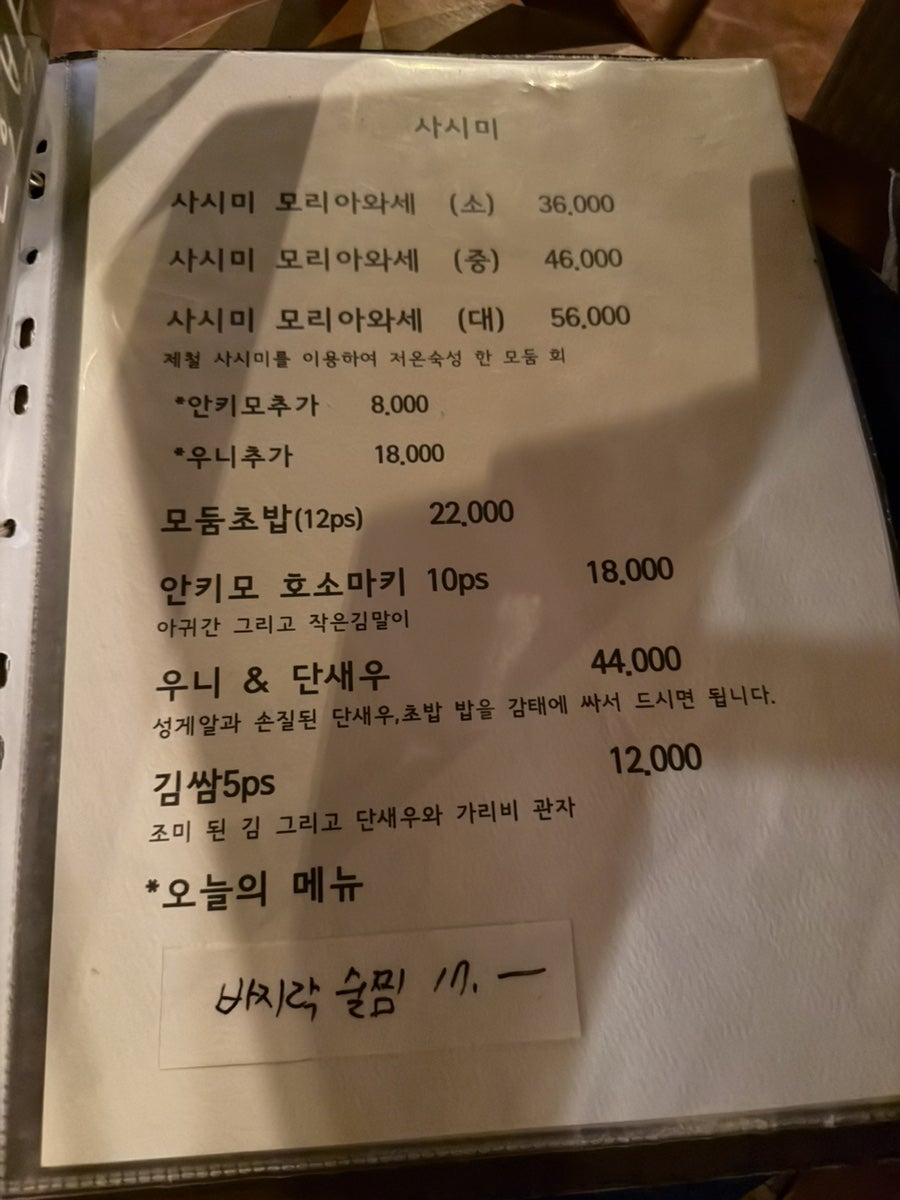 사시미
사시미 모리아와세 (소) 36.000
사시미 모리아와세 (중) 46.000
사시미 모리아와세 (대) 56.000
제철 사시미를 이용하여 저온숙성 한 모둠 회
*안키모추가 8.000
*우니추가 18.000
모둠초밥(12ps) 22.000
안키모 호소마키 10ps 18.000
아귀간 그리고 작은김말이
우니 & 단새우 44.000
성게알과 손질된 단새우,초밥 밥을 감태에 싸서 드시면 됩니다.
김쌈5ps 12.000
조미 된 김 그리고 단새우와 가리비 관자
*오늘의 메뉴
바지락 술찜 17. —